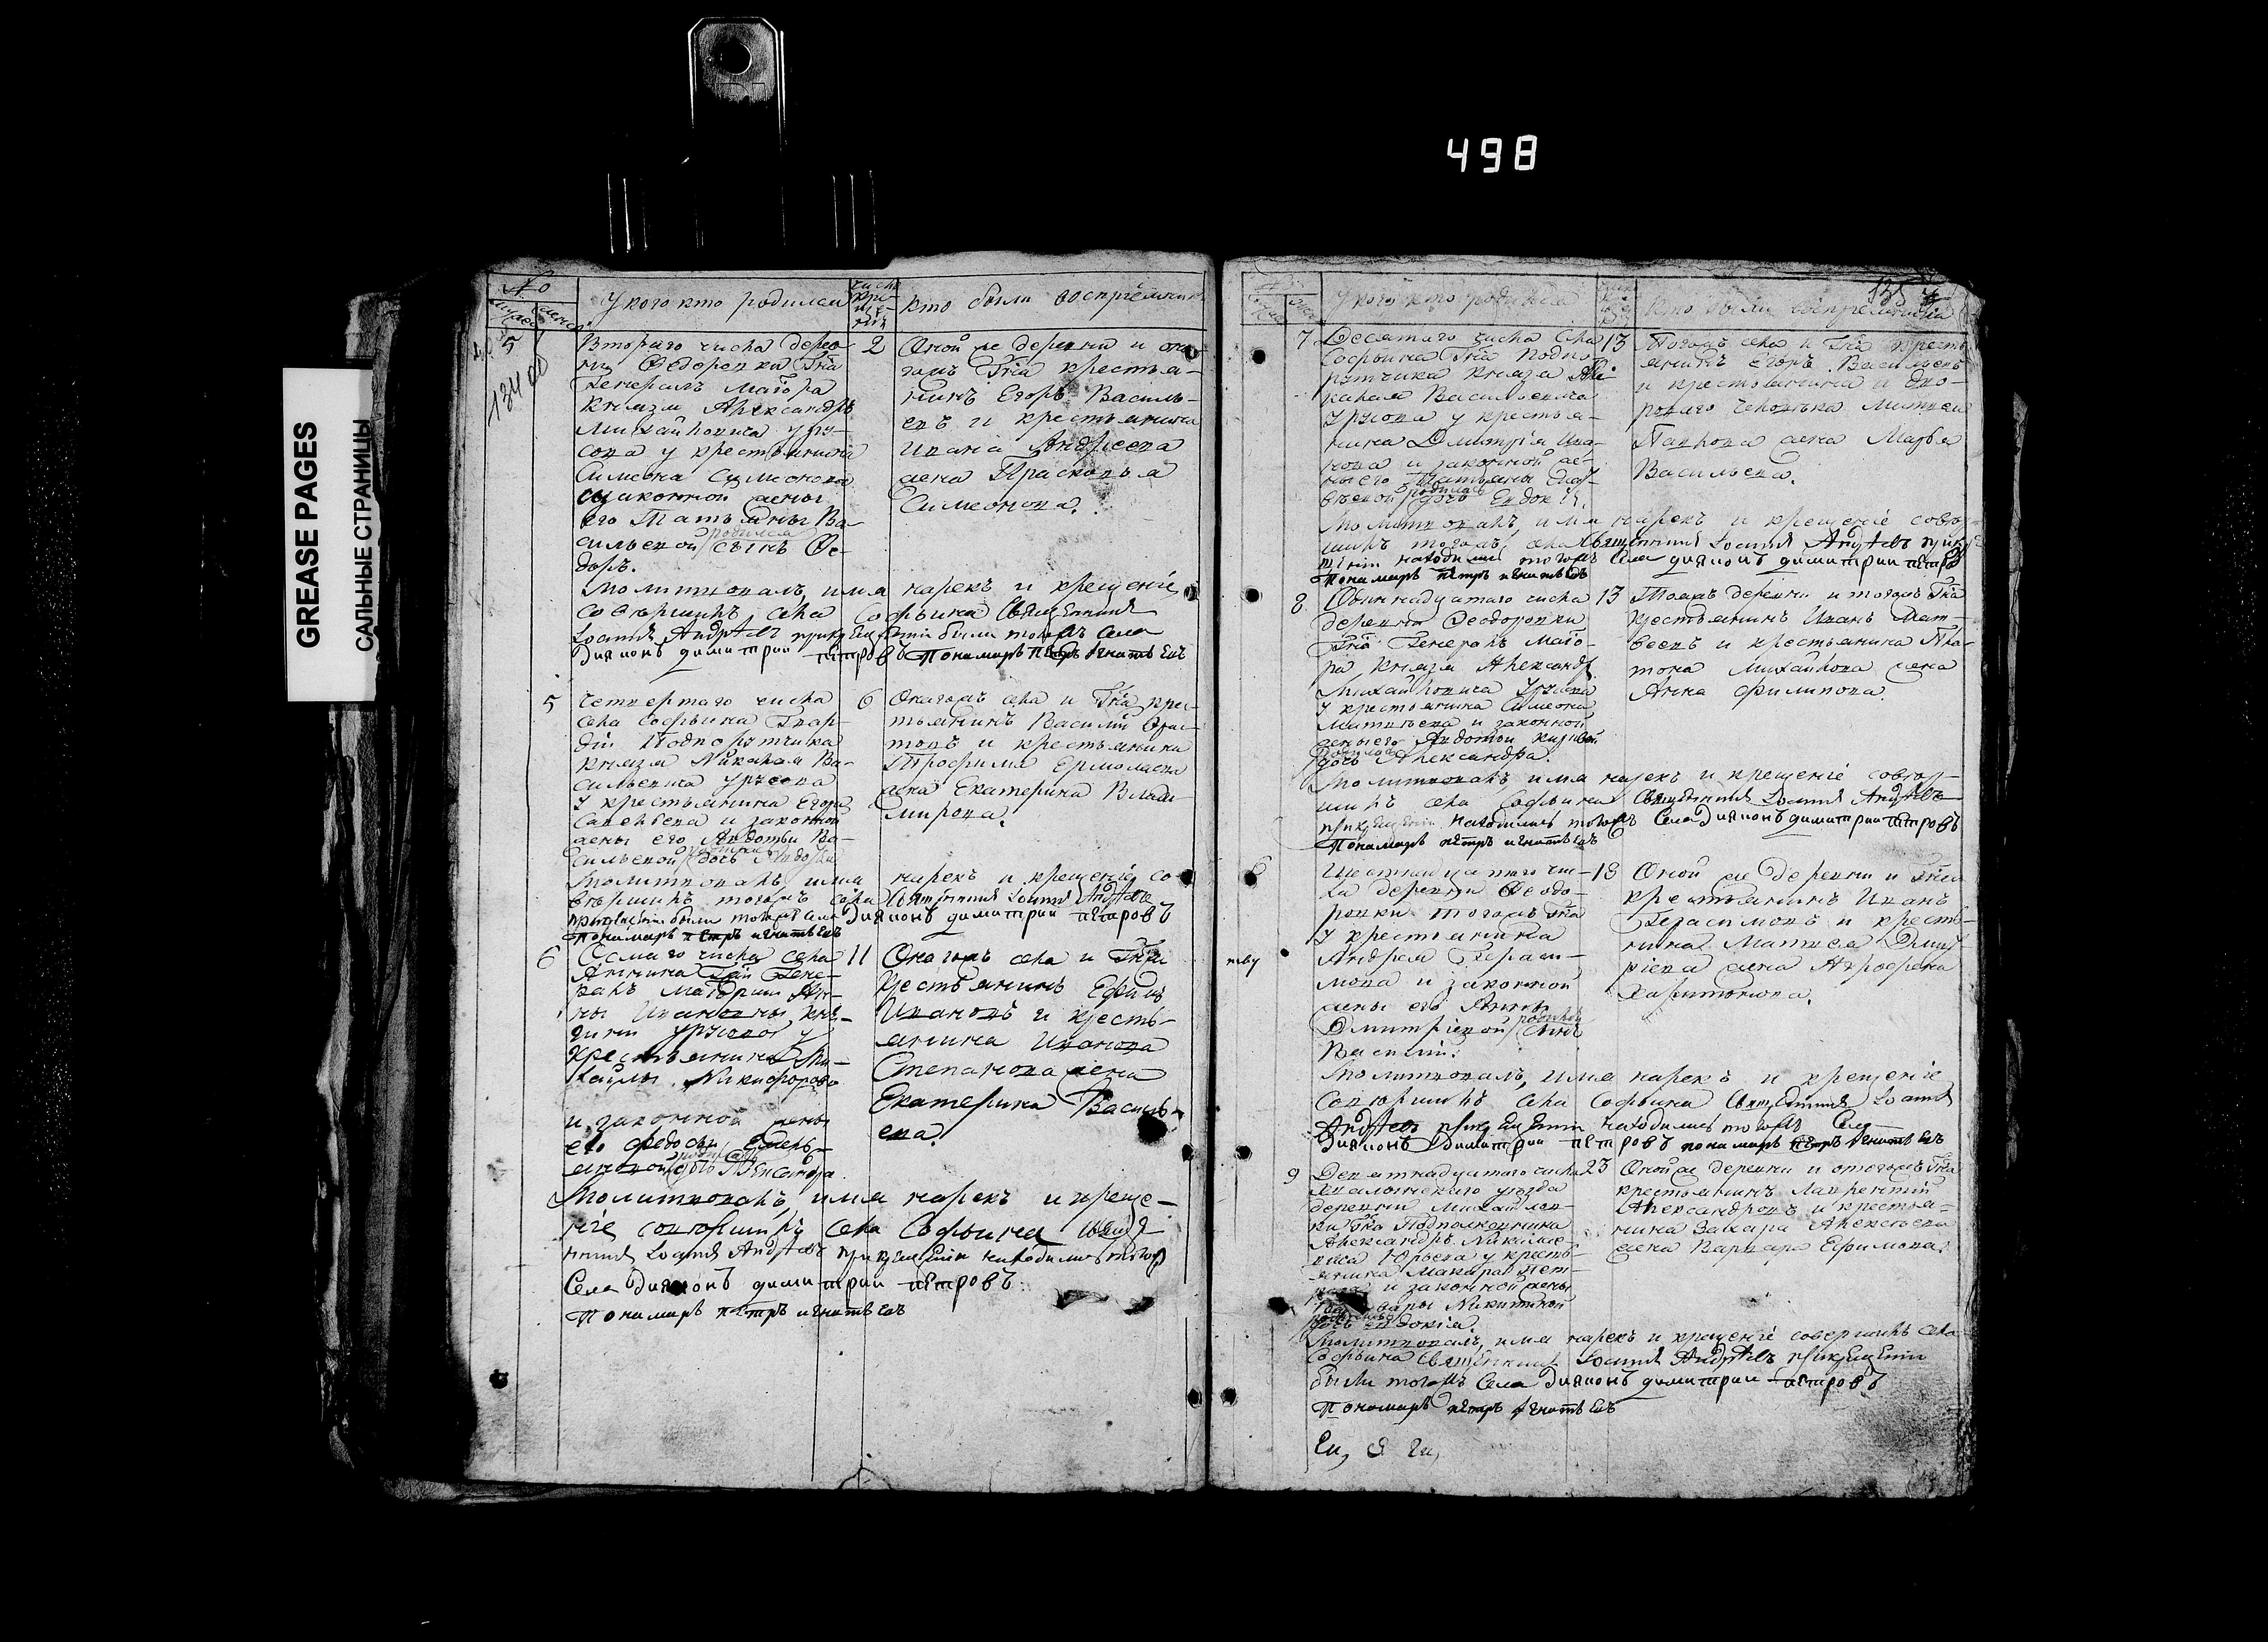 498
GREASE PAGES
САЛЬНЫЕ СТРАНИЦЫ
№
У кого кто родился
кто были восприемники
5
Втораго числа дерев
ни Федоровки Гна
Генералъ Маіора
Князя Александръ
Михайловича Уру-
сова у крестьянина
Симеона Симеонова
законной жены
его Татьяны Ва-
сильевой родился сынъ Фе-
доръ.
2
Оной же деревни и она
гожъ Гна крестья-
нинъ Егоръ Василь-
евъ и крестьянина
Ивана Андреева
жена Прасковья
Симеонова.
Молитвовалъ, имя нарекъ и крещеніе
совершилъ села Софьина Священникъ
Іоаннъ Андреевъ при крещеніи были тогожъ села
Диаконъ Димитрий Петровъ Пономарь Петръ Игнатьевъ
5
Четвертаго числа
села Софьина Гвар-
діи Подпорутчика
Князя Николая Ва-
сильевича Урусова
у крестьянина Егора
Савельева и законной
жены его Авдотьи Ва-
сильевой дочь
6
Онагожъ села и Гна крес-
тьянинъ Василій
и крестьянина
Трофима Ермолаева
жена Екатерина Влади-
мирова.
Молитвовалъ имя нарекъ и крещеніе со-
вершилъ тогожъ села Священникъ Іоаннъ Андреевъ
при крещеніи были тогожъ села Диаконъ Димитрий Петровъ
Пономарь Петръ Игнатьевъ
6
Осмаго числа села
Аннина Гжи Гене-
ралъ Маіорши Ан-
ны Ивановны Кня-
гини Урусовой у
крестьянина Ми-
хайлы Никифорова
и законной жены
его Федосьи
дочь Александра.
11
Онагожъ села и Гжи
крестьянинъ Ефимъ
Ивановъ и кресть-
янина Иванова
Степанова жена
Екатерина Василь-
ева.
Молитвовалъ, имя нарекъ и креще-
ніе совершилъ села Софьина Свяще-
нникъ Іоаннъ Андреевъ при крещеніи находились тогожъ
Села Диаконъ Димитрий Петровъ
Пономарь Петръ Игнатьевъ
135
У кого кто родился
Кто были восприемники
7
Десятаго числа Села
Софьина Гна Подпо-
рутчика Князя Ни-
колая Васильевича
Урусова у крестья-
нина Димитрія Ива-
нова и законной же-
ны его Татьяны
родилась дочь Евдокія.
13
Тогожъ села и Гна кресть-
янинъ Егоръ Васильевъ
и крестьянина и дво-
роваго человека
жена Марья
Васильева.
Молитвовалъ, имя нарекъ и крещеніе совер-
шилъ тогожъ села Священникъ Іоаннъ Андреевъ при кре-
щеніи находились тогожъ Села Диаконъ Димитрии Петровъ
Пономарь Петръ Игнатьевъ
8
числа
деревни Феодоровки
Гна Генералъ Маіо-
ра Князя Александръ
Михайловича Урусова
у крестьянина Симеона
Матвеева и законной
жены его Авдотьи
родилась дочь Александра.
13
Тояжъ деревни и тогожъ Гна
крестьянинъ Иванъ Мат-
веевъ и крестьянина Пла-
тона Михайлова жена
Анна Филипова.
Молитвовалъ имя нарекъ и крещеніе совер-
шилъ села Софьина Священникъ Іоаннъ Андреевъ
при крещеніи находились тогожъ Села Диаконъ Димитрии Петровъ
Пономарь Петръ Игнатьевъ
6
тву
чис-
ла деревни Феодо-
ровки тогожъ Гна
у крестьянина
Андрея Гераси-
мова и законной
жены его Анны
Дмитріевой родился сынъ
Василій.
18
Оной же деревни и Гна
крестьянинъ Иванъ
Герасимовъ и кресть-
нина Матвея Дмит-
ріева жена Агрофена
Харитонова.
Молитвовалъ, имя нарекъ и крещеніе
совершилъ села Софьина Священникъ Іоаннъ
Андреевъ при крещеніи находились тогожъ Села
Диаконъ Димитрии Петровъ пономарь Петръ Игнатьевъ
9
Девятнадцатаго числа
уезда
деревни Михайлов-
ки Гна Подполковника
Александръ Николае-
вича Юрьева у кресть-
янина Макара Пет-
рова и законной жены
Никитиной
дочь Евдокія
23
Оной же деревни и тогожъ Гна
крестьянинъ Лаврентій
Александровъ и крестья-
нина Захара Алексеева
жена Варвара Ефимова.
Молитвовалъ, имя нарекъ и крещеніе совершилъ села
Софьина Священникъ Іоаннъ Андреевъ при крещеніи
были тогожъ Села Диаконъ Димитрии Петровъ
Пономарь Петръ Игнатьевъ